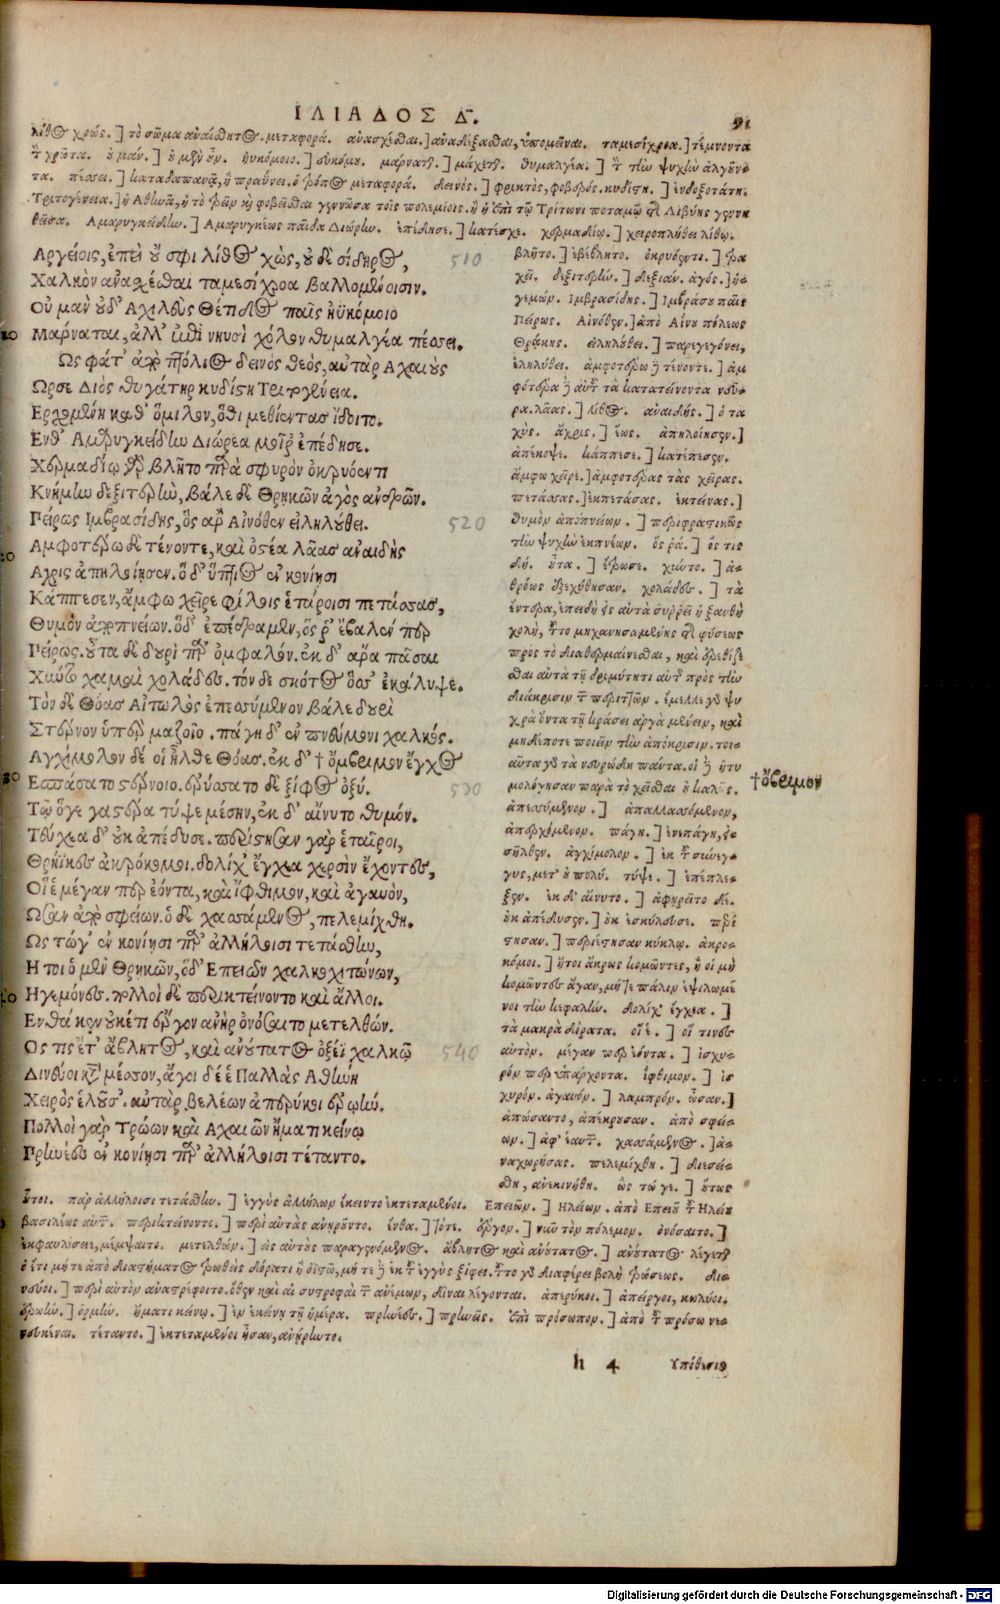 ΙΛΙΑΔΟΣ Δ. 91
λίθος χρώς. ] τὸ σῶμα ἀναίσθητος. μεταφορά. ἀνασχέσθαι. ] ἀναδέξασθαι, ὑπομεῖναι. ταμεσίχροα. ] τέμνοντα
χρῶτα. οὐ μάν. ] οὐ μὲν οὖν. ἠυκόμοιο. ] εὐκόμου. μάρναται. ] μάχεται. θυμαλγέα. ] τὴν ψυχὴν ἀλγύνον-
τα. πέσσει. ] καταδαπανᾷ, ἢ πραΰνει. ὁ τρόπος μεταφορά. δεινός. ] φρικτὸς, φοβερός. κυδίστη. ] ἐνδοξοτάτη.
Τριτογένεια. ] ἡ Ἀθηνᾶ, ἢ τὸ τρεῖν καὶ φοβεῖσθαι γεννῶσα τοῖς πολεμίοις. ἢ ἡ ἐπὶ τῷ Τρίτωνι ποταμῷ τῆς Λιβύης γεννη
θεῖσα. Αμαρυγκείδην. ] Αμαρυγκέως παῖδα Διώρην. ἐπέδησε. ] κατέσχε. χερμαδίῳ. ] χειροπληθεῖ λίθῳ.
Αργείοις, ἐπεὶ οὔ σφι λίθος χρὼς, οὐδὲ σίδηρος, 510
Χαλκὸν ἀνασχέσθαι ταμεσίχροα βαλλομένοισιν.
Οὐ μὰν οὐδ' Αχιλεὺς Θέτιδος παῖς ἠϋκόμοιο
Μάρναται, ἀλλ' ἐπὶ νηυσὶ χόλον θυμαλγέα πέσσει.
Ως φάτ' ἀπὸ πτόλιος δεινὸς θεός, αὐτὰρ Αχαιοὺς
Ωρσε Διὸς θυγάτηρ κυδίστη Τριτογένεια.
Ερχομένη καθ' ὅμιλον, ὅθι μεθιέντας ἴδοιτο.
Ενθ' Αμαρυγκείδην Διώρεα μοῖρ' ἐπέδησε.
Χερμαδίῳ γὰρ βλῆτο παρὰ σφυρὸν ὀκρυόεντι
Κνήμην δεξιτερὴν, βάλε δὲ Θρηκῶν ἀγὸς ἀνδρῶν.
Πείρως Ιμβρασίδης, ὃς ἄρ' Αἰνόθεν εἰληλούθει. 520
Αμφοτέρω δὲ τένοντε, καὶ ὀστέα λᾶας ἀναιδὴς
Αχρις ἀπηλοίησεν. ὁ δ' ὕπτιος ἐν κονίῃσι
Κάππεσεν, ἄμφω χεῖρε φίλοις ἑτάροισι πετάσσας,
Θυμὸν ἀποπνείων. ὁ δ' ἐπέδραμεν, ὅς ῥ' ἔβαλέν περ
Πείρως. οὖτα δὲ δουρὶ παρ' ὀμφαλόν. ἐκ δ' ἄρα πᾶσαι
Χύντο χαμαὶ χολάδες. τὸν δὲ σκότος ὄσσ' ἐκάλυψε.
Τὸν δὲ Θόας Αἰτωλὸς ἐπεσσύμενον βάλε δουρὶ
Στέρνον ὑπὲρ μαζοῖο. πάγη δ' ἐν πνεύμονι χαλκός.
Αγχίμολον δέ οἱ ἦλθε Θόας. ἐκ δ' † ὄμβριμον ἔγχος
Εσπάσατο στέρνοιο. ἐρύσσατο δὲ ξίφος ὀξύ. 530
Τῷ ὅγε γαστέρα τύψε μέσην, ἐκ δ' αἴνυτο θυμόν.
Τεύχεα δ' οὐκ ἀπέδυσε. περίστησαν γὰρ ἑταῖροι,
Θρήϊκες ἀκρόκομοι. δολίχ' ἔγχεα χερσὶν ἔχοντες,
Οἵ ἑ μέγαν περ ἐόντα, καὶ ἴφθιμον, καὶ ἀγαυὸν,
Ωσαν ἀπὸ σφείων. ὁ δὲ χασσάμενος, πελεμίχθη.
Ως τώγ' ἐν κονίῃσι παρ' ἀλλήλοισι τετάσθην,
Η τοι ὁ μὲν Θρηκῶν, ὁ δ' Επειῶν χαλκοχιτώνων,
Ηγεμόνες. πολλοὶ δὲ περικτείνοντο καὶ ἄλλοι.
Ενθά κεν οὐκέτι ἔργον ἀνὴρ ὀνόσαιτο μετελθών.
Ος τις ἔτ' ἄβλητος, καὶ ἀνούτατος ὀξέϊ χαλκῷ 540
Δινεύοι κατὰ μέσσον, ἄγοι δέ ἑ Παλλὰς Αθήνη
Χειρὸς ἑλοῦσ'. αὐτὰρ βελέων ἀπερύκοι ἐρωήν.
Πολλοὶ γὰρ Τρώων καὶ Αχαιῶν ἤματι κείνῳ
Πρηνέες ἐν κονίῃσι παρ' ἀλλήλοισι τέταντο.
βλῆτο. ] ἐβέβλητο. ὀκρυόεντι. ] τρα
χεῖ. δεξιτερήν. ] δεξιάν. ἀγός. ] ἡ-
γεμών. Ιμβρασίδης. ] Ιμβράσου παῖς
Πείρως. Αἰνόθεν. ] ἀπὸ Αἴνου πόλεως
Θρᾴκης. εἰληλούθει. ] παρεγεγόνει,
ἐληλύθει. ἀμφοτέρω τένοντε. ] ἀμ
φότερα αὐτοῦ τὰ κατατείνοντα νεῦ-
ρα. λᾶας. ] λίθος. ἀναιδής. ] ὁ τα
χύς. ἄχρις. ] ἕως. ἀπηλοίησεν. ]
ἀπέκοψε. κάππεσε. ] κατέπεσεν.
ἄμφω χεῖρε. ] ἀμφοτέρας τὰς χεῖρας.
πετάσσας. ] ἐκπετάσας. ἐκτείνας. ]
θυμὸν ἀποπνείων. ] περιφραστικῶς
τὴν ψυχὴν ἐκπνέων. ὅς ῥά. ] ὅς τις
δή. οὖτα. ] ἔτρωσε. χύντο. ] ἀ-
θρόως ἐξεχύθησαν. χολάδες. ] τὰ
ἔντερα, ἐπειδὴ εἰς αὐτὰ συρρεῖ ἡ ξανθὴ
χολὴ, τοῦτο μηχανησαμένης τῆς φύσεως
πρὸς τὸ διαθερμαίνεσθαι, καὶ ἐρεθίζε
σθαι αὐτὰ τῇ δριμύτητι αὐτῆς πρὸς τὴν
διάκρισιν τῶν περιττῶν. ἔμελλε γὰρ ψυ
χρὰ ὄντα τῇ κράσει ἀργὰ μένειν, καὶ
μηδέποτε ποιεῖν τὴν ἀπόκρισιν. τοι-
αῦτα γὰρ τὰ νευρώδη πάντα.
μολόγησαν παρὰ τὸ χεῖσθαι
ἀπεσσύμενον. ] ἀπαλλασσόμενον,
ἀπερχόμενον. πάγη. ] ἐνεπάγη, εἰ-
σῆλθεν. ἀγχίμολον. ] ἐκ τοῦ σύνεγ-
γυς, μετ' οὐ πολύ. τύψε. ] ἐπέπλη-
ξεν. ἐκ δ' αἴνυτο. ] ἀφῃρεῖτο δέ.
οὐκ ἀπέδυσεν. ] οὐκ ἐσκύλευσε. περί
στησαν. ] περιέστησαν κύκλῳ. ἀκρο-
κόμοι. ] ἤτοι ἄκρως κομῶντες, ἢ οἱ μὴ
κομῶντες ἄγαν, μήτε πάλιν ἐψιλωμέ
νοι τὴν κεφαλήν. δολίχ' ἔγχεα. ]
τὰ μακρὰ δόρατα. οἵ ἑ. ] οἵ τινες
αὐτόν. μέγαν περ ἐόντα. ] ἰσχυ-
ρόν περ ὑπάρχοντα. ἴφθιμον. ] ἰσ
χυρόν. ἀγαυόν. ] λαμπρόν. ὦσαν. ]
ἀπώσαντο, ἀπέκρουσαν. ἀπὸ σφεί-
ων. ] ἀφ' ἑαυτῶν. χασσάμενος. ] ἀ-
ναχωρήσας. πελεμίχθη. ] διεσεί-
σθη, ἀνεκινήθη. ὣς τώ γε. ] οὕτως
† ὄβριμον
οὗτοι. παρ' ἀλλήλοισι τετάσθην. ] ἐγγὺς ἀλλήλων ἔκειντο ἐκτεταμένοι. Επειῶν. ] Ηλείων. ἀπὸ Επειοῦ τοῦ Ηλείων
βασιλέως αὐτῶν. περικτείνοντο. ] περὶ αὐτὰς ἀνῃροῦντο. ἔνθα. ] τότε. ἔργον. ] νῦν τὸν πόλεμον. ὀνόσαιτο. ]
ἐκφαυλίσειε, μέμψαιτο. μετελθών. ] εἰς αὐτοὺς παραγενόμενος. ἄβλητος καὶ ἀνούτατος. ] ἀνούτατος λέγεται
ὁ ἔτι μήτε ἀπὸ διαστήματος τρωθεὶς δόρατι ἢ ὀϊστῷ, μήτε ἐκ τοῦ ἐγγὺς ξίφει. τούτο γὰρ διαφέρει βολὴ τρώσεως. δι-
νεύοι. ] περὶ αὐτὸν ἀναστρέφοιτο. ὅθεν καὶ αἱ συστροφαὶ τῶν ἀνέμων, δῖναι λέγονται. ἀπερύκοι. ] ἀπείργοι, κωλύοι.
ἐρωήν. ] ὁρμήν. ἤματι κείνῳ. ] ἐν ἐκείνῃ τῇ ἡμέρᾳ. πρηνέες. ] πρηνεῖς. ἐπὶ πρόσωπον. ] ἀπὸ τοῦ πρόσω νε-
νευκέναι. τέταντο. ] ἐκτεταμένοι ἦσαν, ἀνῄρηντο.
h 4 Υπόθεσις
Digitalisierung gefördert durch die Deutsche Forschungsgemeinschaft - DFG